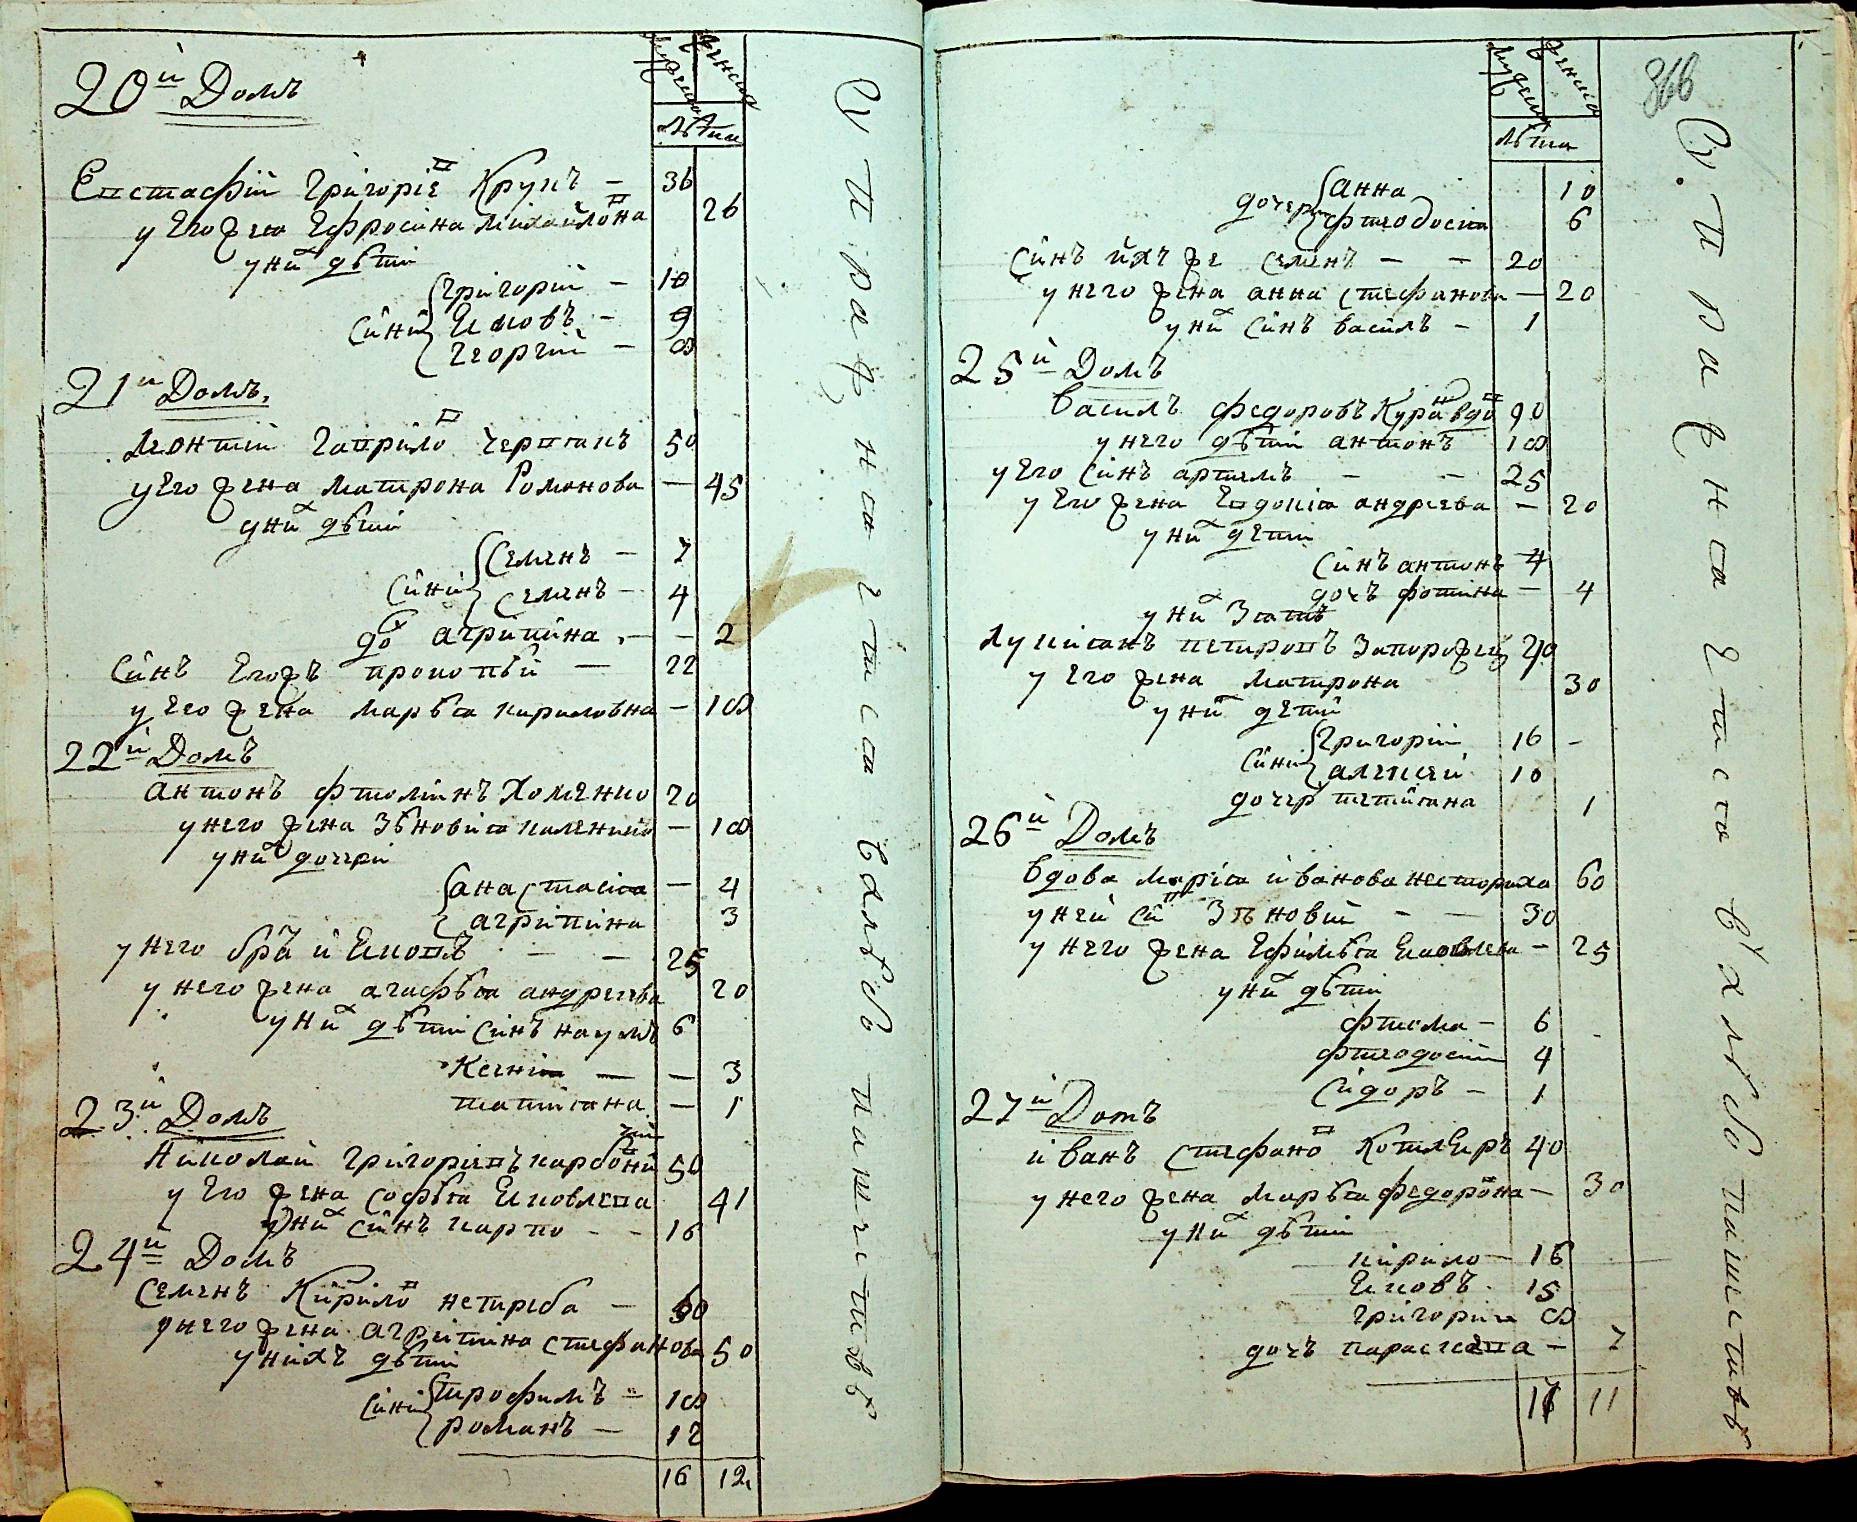 20й Домъ
мужеска
женска
лѣта
Евстафій Григоріе в Крукъ — 36
у Его жена Ефросина Михайло в на 26
у них дѣти
Григорій — 10
сини Яковъ — 9
Георгій — 8
21й Домъ.
Леонтій Гаврило в Черпакъ 50
у Его жена Матрона Романова — 45
у них дѣти
Семенъ — 7
сини Семенъ — 4
до агрипина — 2
синъ Егожъ прокопій — 22
у Его жена марѣя кириловна — 18
22й Домъ
антонъ фтоминъ Хоменко 20
у него жена Зѣновия каленико — 18
у них дочери
анастасія — 4
агрипина 3
у него бра й Яковъ — — 25
у него жена агафѣя андреева 20
у них дѣти синъ наумъ 6
Ксенія — — 3
татіяна — 1
23й Домъ
Николай григоріевъ карбо 50
у Его жена софѣя Яковлева 41
у них синъ карпо — — 16
24й Домъ
семенъ Кирило в нетреба — 60
у него жена агрипина стефанова 50
у нихъ дѣти
сини трофимъ — 18
романъ — 12
16 12
У пражнея етися в хлѣбопашествѣ
366
мужеска
женска
лѣта
дочери анна 10
фтеодосия 6
синъ ихъ же семенъ — — 20
у него жена анна стефанова — 20
у них синъ василъ — 1
25й Домъ
василъ федоровъ 90
у него дѣти антонъ 18
у Его синъ артемъ — — 25
у Его жена Евдокія андреева — 20
у них дети
синъ антонъ 4
дочъ фотина — 4
у них Зять
Лукиянъ петровъ Запорожец 40
у Его жена матрона 30
у них дети
Григорій 16 —
сини алексей 10
дочер тетияна 1
26й Домъ
вдова марія иванова несториха 60
у ней си Зѣновій — — 30
у него жена Ефимѣя Яковлева — 25
у них дѣти
фтома — 6
фтеодосій 4
Сидоръ — 1
27й Домъ
иванъ стефано в Котляръ 40
у него жена Марѣя федоро в на — 30
у них дѣти
кирило — 16
Яковъ — 15
григорий 8
дочъ параскева — 7
11 11
У пражнея етися в хлѣбопашествѣ